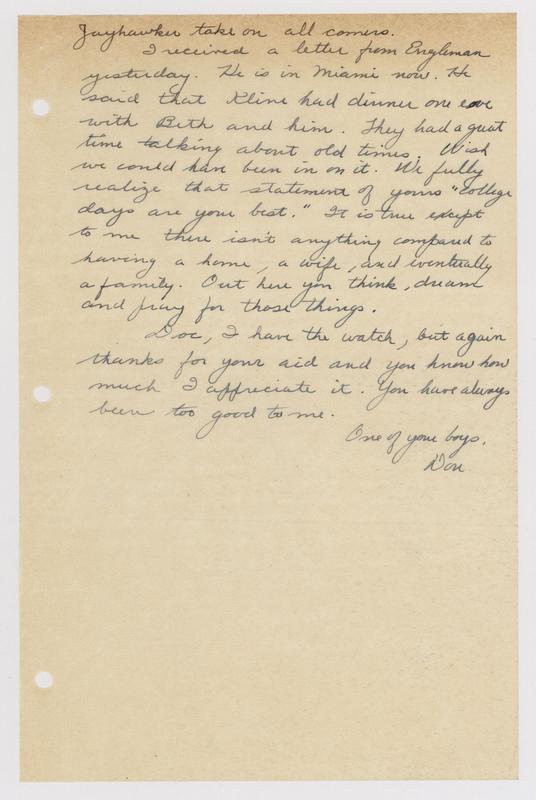 Jayhawker take on all comers.
I received a letter from Engleman
yesterday. He is in Miami now. He
said that Kline had dinner one eve
with Beth and him. They had a great
time talking about old times. Wish
we could have been in on it. We fully
realize that statement of yours "College
days are your best." It is true except
to me there isn't anything compared to
having a home, a wife, and eventually
a family. Out here you think, dream
and pray for those things.
Doc, I have the watch, but again
thanks for your aid and you know how
much I appreciate it. You have always
been too good to me.
One of your boys.
Don